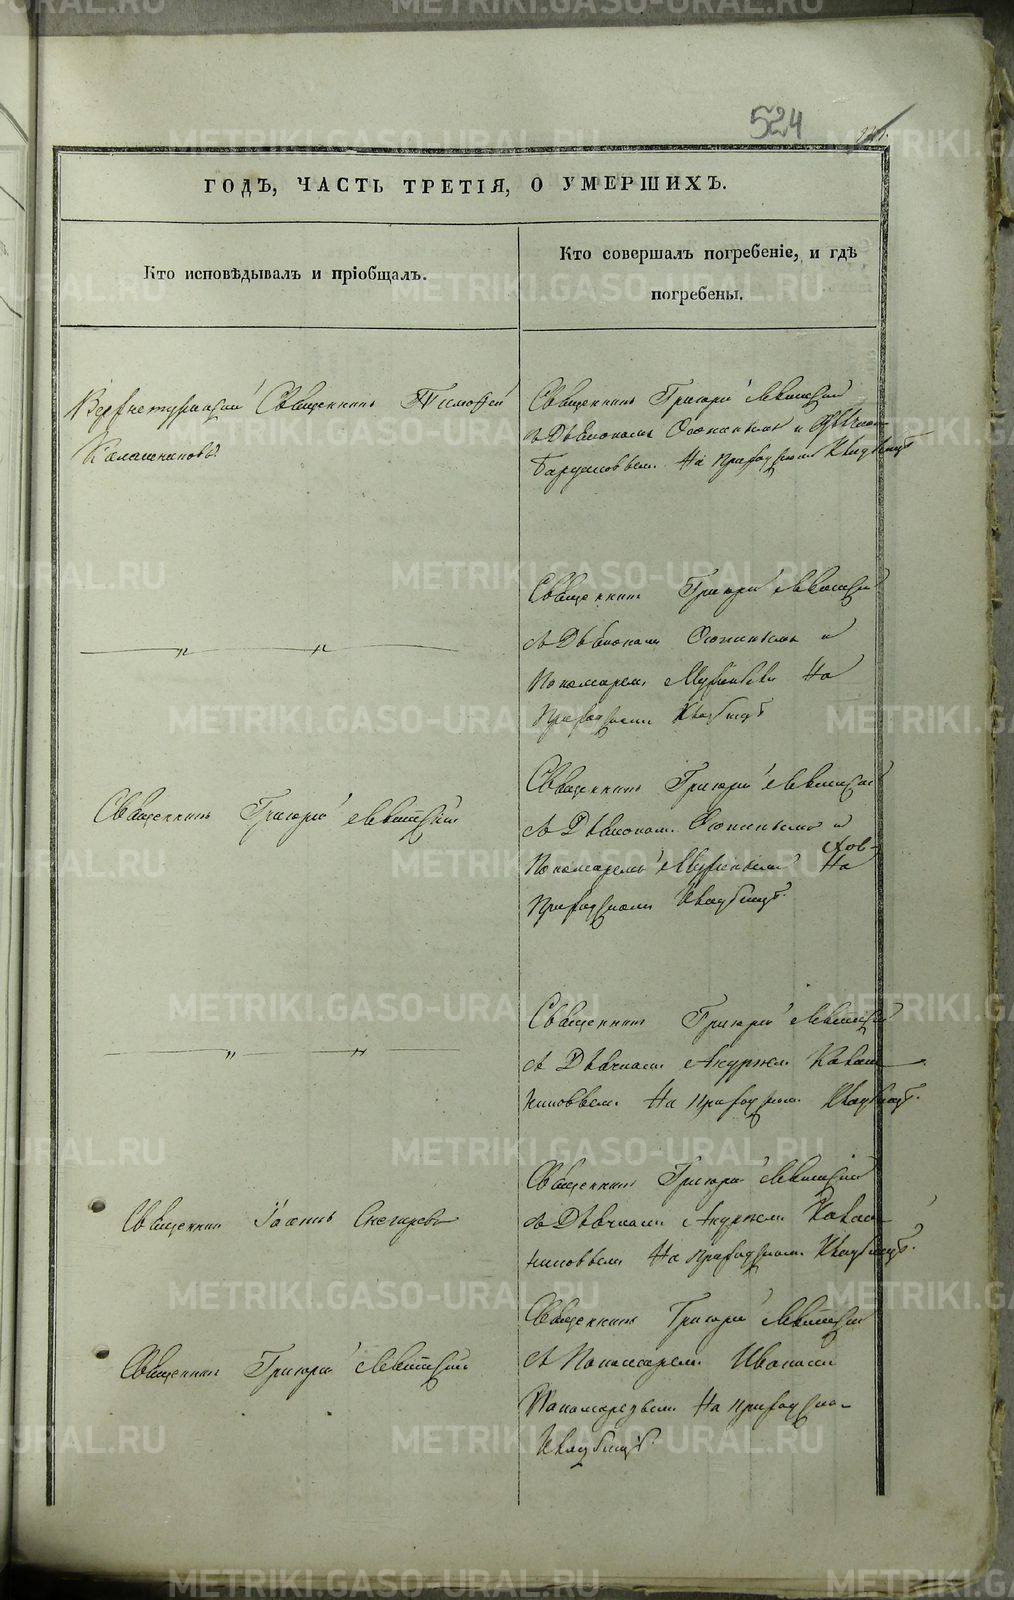 524
ГОДЪ, ЧАСТЬ ТРЕТІЯ, О УМЕРШИХЪ.
Кто исповѣдывалъ и пріобщалъ.
Кто совершалъ погребеніе, и гдѣ
погребены.
Священникъ Тимофей
Калашниковъ
Священникъ Григорій Левитскій
съ Діакономъ и
На приходскомъ кладбищѣ
Священникъ Григорій Левитскій
съ Діакономъ и
Пономаремъ На
Приходскомъ кладбищѣ
Священникъ Григорій Левитскій
Священникъ Григорій Левитскій
съ Діакономъ и
Пономаремъ На
Приходскомъ кладбищѣ.
Священникъ Григорій Левитскій
съ Дьячкомъ
На приходском кладбищѣ.
Священникъ Іоаннъ Снегиревъ
Священникъ Григорій Левитскій
съ Дьячкомъ
На приходскомъ кладбищѣ.
Священникъ Григорій Левитскій
Священникъ Григорій Левитскій
съ Пономаремъ Иваномъ
Пономаревымъ На приходском
кладбищѣ.
METRIKI.GASO-URAL.RU